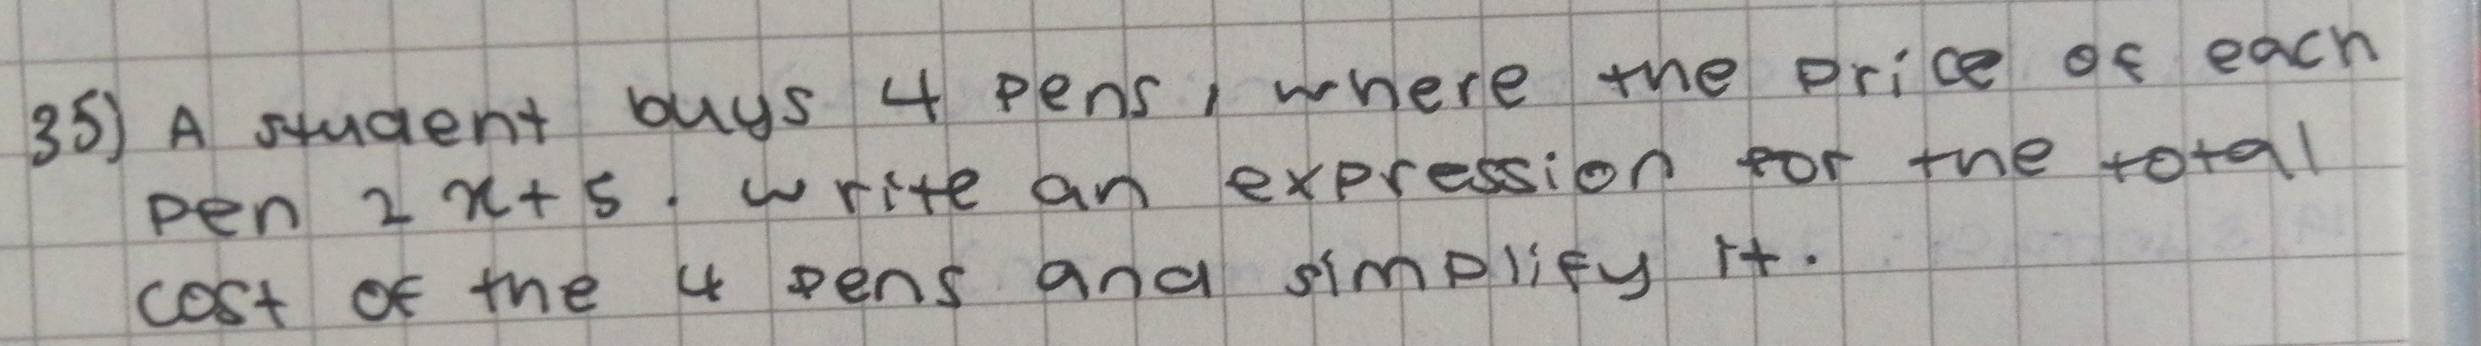 35) A student buys 4 pens, where the price of each
pen 2x+5. write an expression for the total
cost of the 4 pens and simplify it.